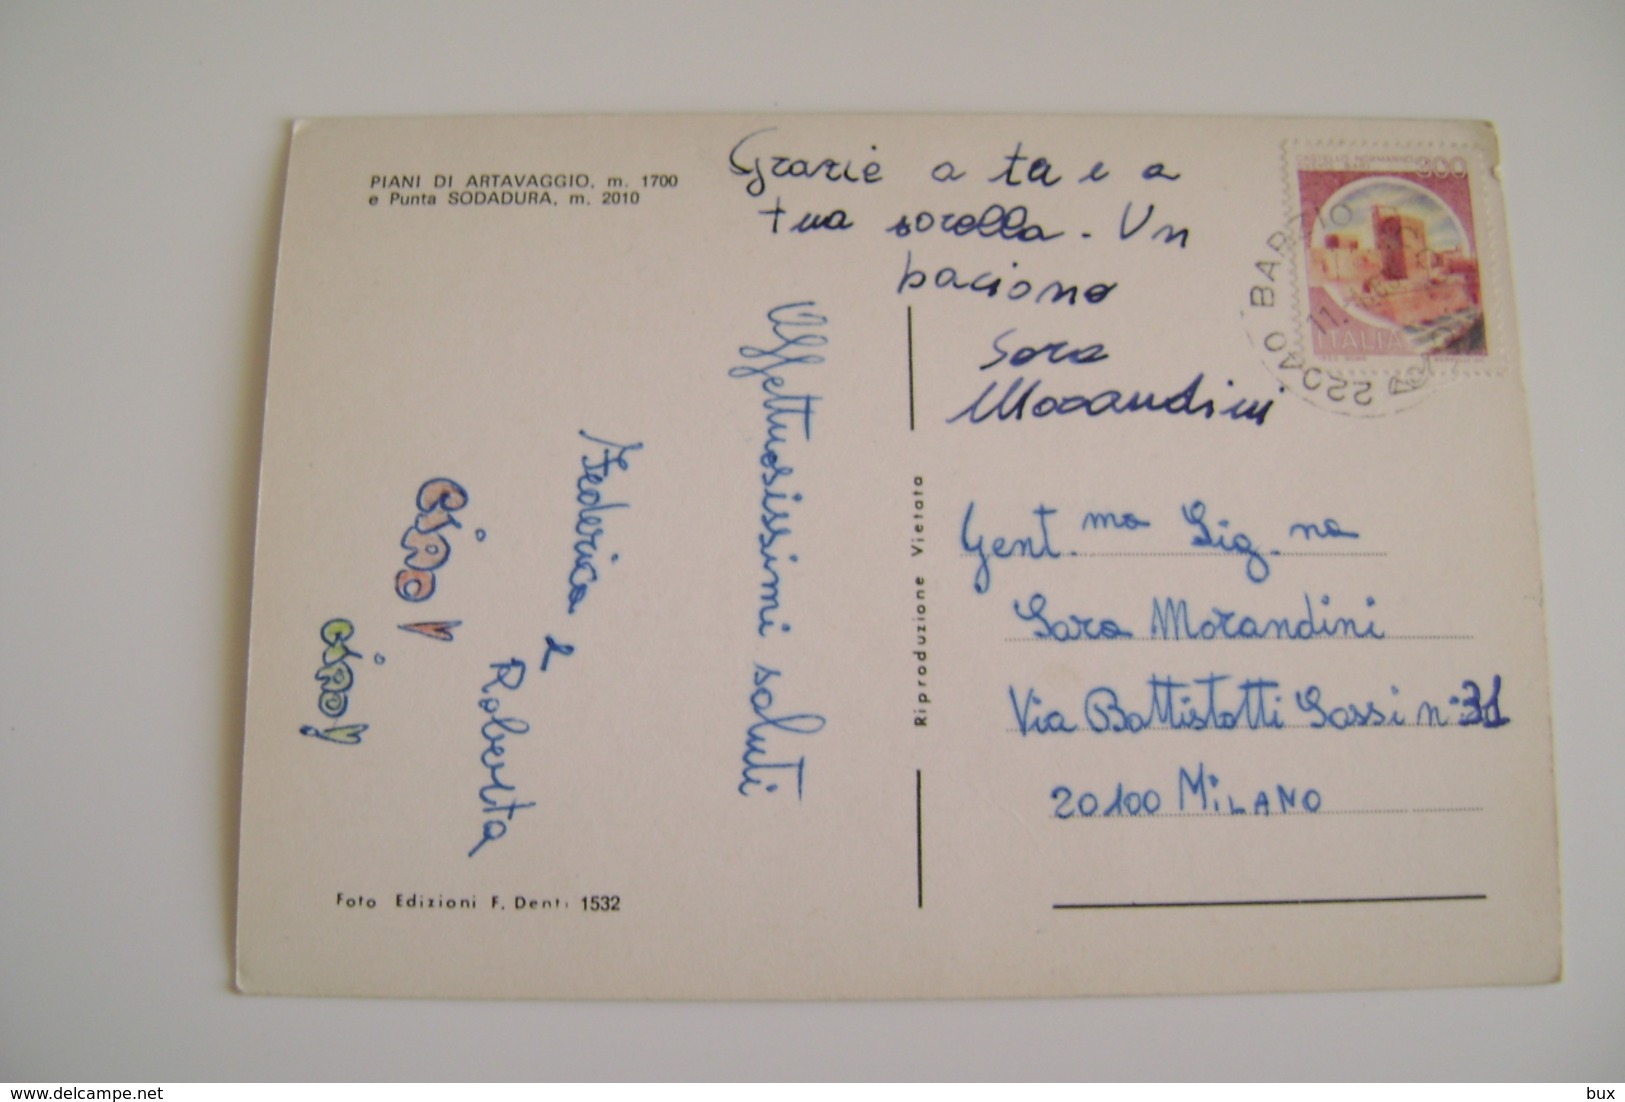 PIANI DI ARTAVAGGIO, m. 1700
e Punta SODADURA, m. 2010
Grazie a te e a
tua sorella. Un
bacione
Sara
Morandini
Affettuosissimi saluti
Federica e
Roberta
CIAO!
CIAO!
Foto Edizioni F. Denti 1532
Riproduzione Vietata
300
ITALIA
22040 BARZIO
11.
Gent.ma Sig.na
Sara Morandini
Via Battistotti Sassi n° 31
20100 MILANO
www.delcampe.net
bux